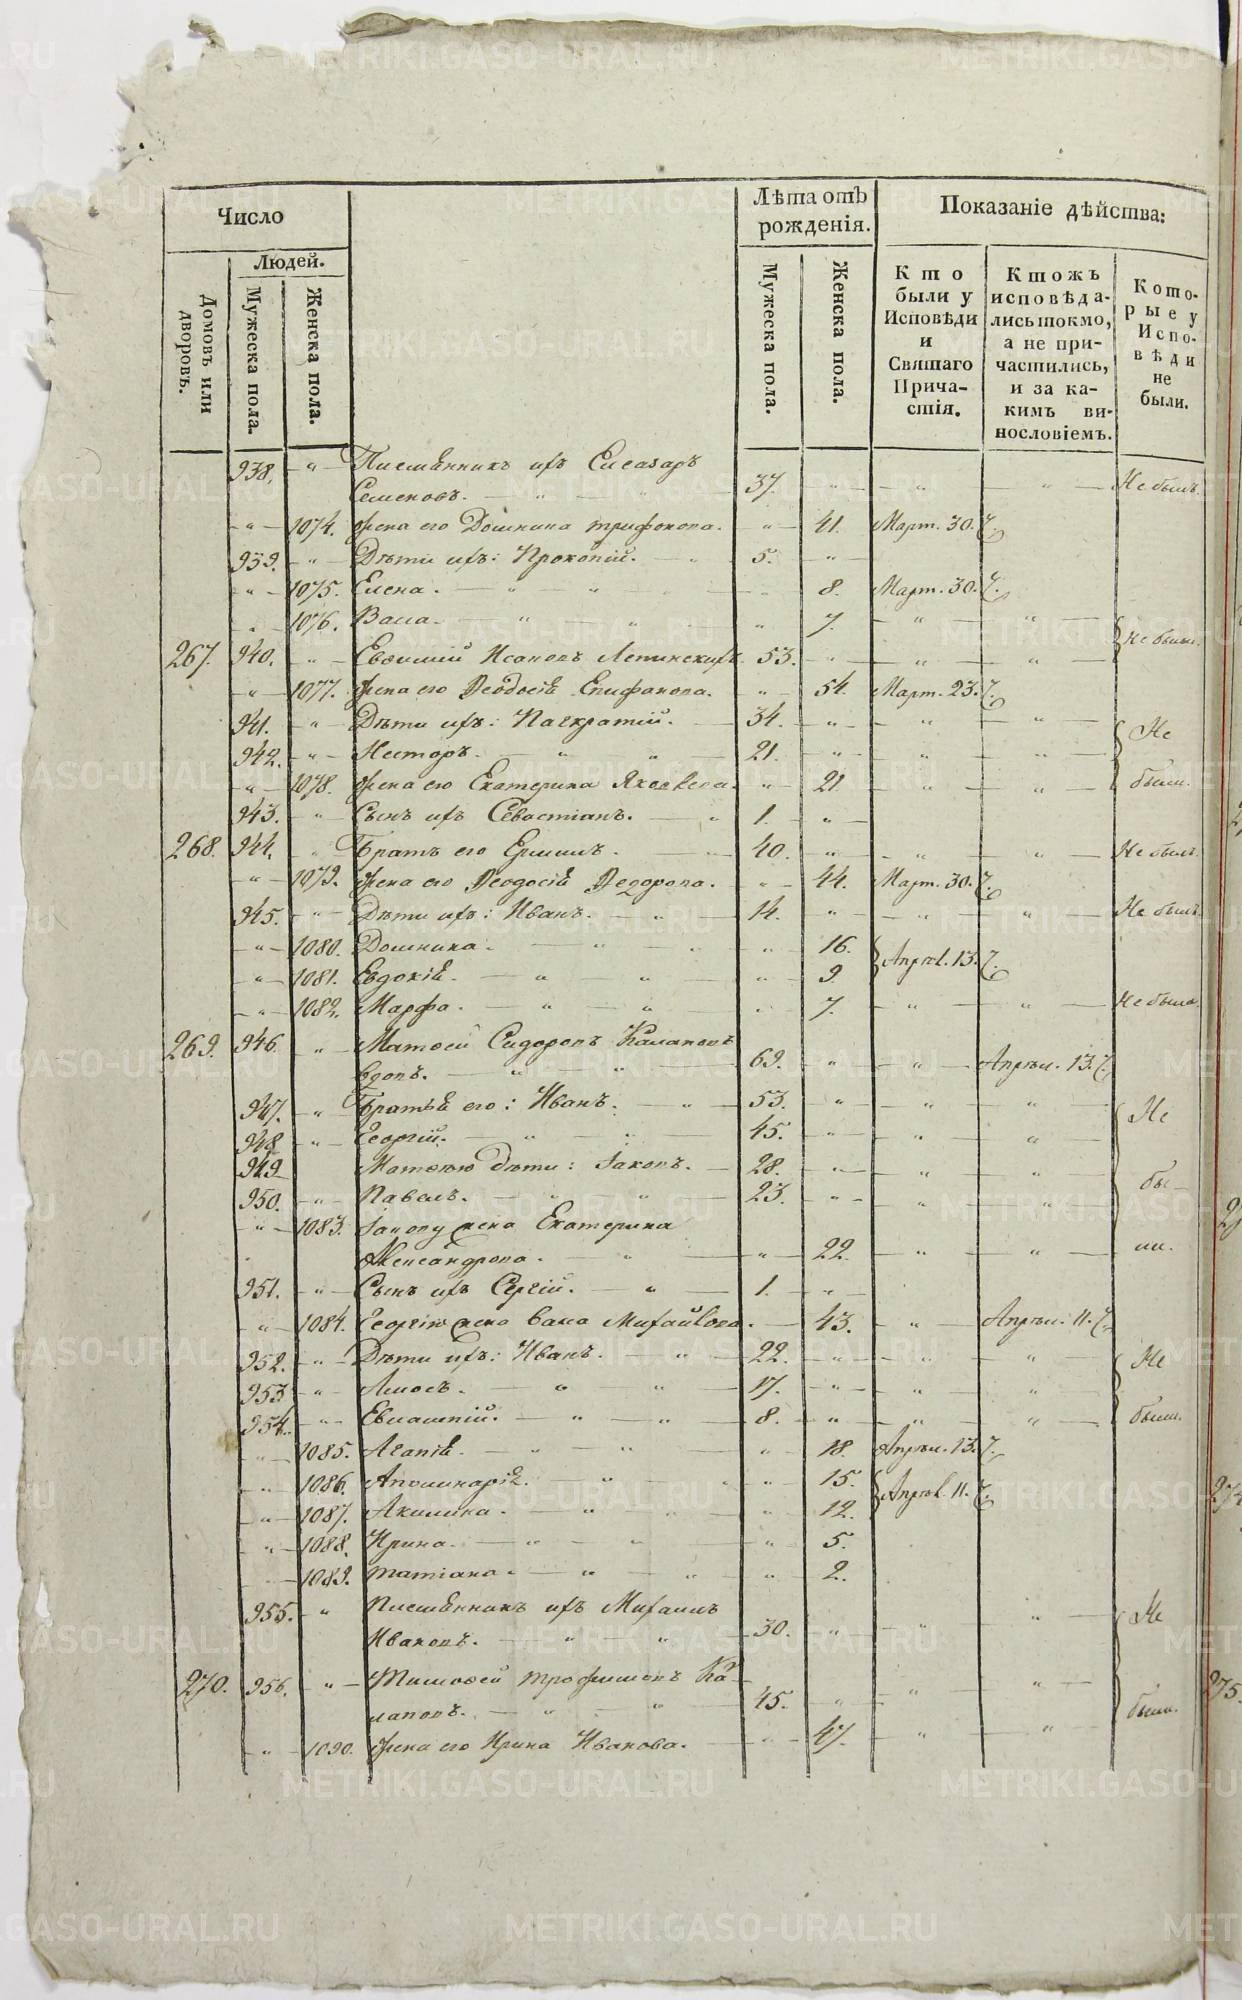 Число
Лѣта отъ рожденія.
Показаніе дѣйства:
Домовъ или дворовъ.
Людей.
Мужеска пола.
Женска пола.
Мужеска пола.
Женска пола.
Кто были у Исповѣди и Святаго Причастія.
Ктожъ исповѣдались токмо, а не причастились, и за какимъ винословіемъ.
Которые у Исповѣди не были.
938. " ихъ Елеазаръ
Семеновъ. 37. Не былъ.
1074. жена его Домника Трифонова. 41. Март. 30.
939. Дѣти ихъ: Прокопій. 5.
1075. Елена. 8. Март. 30.
1076. Васса. 7.
Не были.
267. 940. Евѳимій Исаковъ 53.
1077. жена его Ѳеодосія Епифанова. 54. Март. 23.
941. Дѣти ихъ: Панкратій. 34. Не
942. Несторъ. 21.
1078. жена его Екатерина Яковлева. 21 были.
943. Сынъ ихъ Севастіанъ. 1.
268. 944. Братъ его Ермилъ. 40. Не былъ.
1079. жена его Ѳеодосія Ѳедорова. 44. Март. 30.
945. Дѣти ихъ: Иванъ. 14. Не былъ.
1080. Домника. 16.
Апрѣл. 13.
1081. Евдокія. 9
1082. Марфа. 7. Не была.
269. 946. Матѳей Сидоровъ
вдовъ. 69. Апрѣл. 13.
947. Братья его: Иванъ. 53. Не
948 Георгій. 45.
949 Матѳею дѣти: Іаковъ. 28.
950. Павелъ. 23. бы-
1083. Іакову жена Екатерина
Александрова. 22. ли.
951. Сынъ ихъ Сергій. 1.
1084. Георгію жена Васса Михайлова. 43. Апрѣл. 11.
952. Дѣти ихъ: Иванъ. 22. Не
953 Амосъ. 17.
954. Евлампій. 8. были.
1085. Агапія. 18. Апрѣл. 13.
1086. Аполинарія. 15.
Апрѣл. 11.
1087. Акилина. 12.
1088. Ирина. 5.
1089. Татіана. 2.
955. ихъ Михаилъ Не
Ивановъ. 30.
270. 956. Тимоѳей Трофимовъ
45. были.
1090. жена его Ирина Иванова. 47.